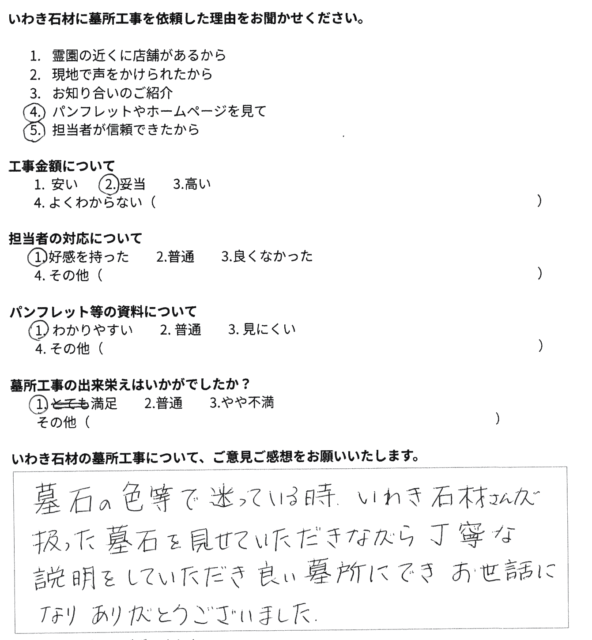 いわき石材に墓所工事を依頼した理由をお聞かせください。
1. 霊園の近くに店舗があるから
2. 現地で声をかけられたから
3. お知り合いのご紹介
4. パンフレットやホームページを見て
5. 担当者が信頼できたから
工事金額について
1. 安い 2.妥当 3.高い
4. よくわからない（ ）
担当者の対応について
1.好感を持った 2.普通 3.良くなかった
4. その他（ ）
パンフレット等の資料について
1. わかりやすい 2. 普通 3. 見にくい
4. その他（ ）
墓所工事の出来栄えはいかがでしたか？
1. とても満足 2.普通 3.やや不満
その他（ ）
いわき石材の墓所工事について、ご意見ご感想をお願いいたします。
墓石の色等で迷っている時、いわき石材さんが
扱った墓石を見せていただきながら丁寧な
説明をしていただき良い墓所にでき お世話に
なり ありがとうございました.